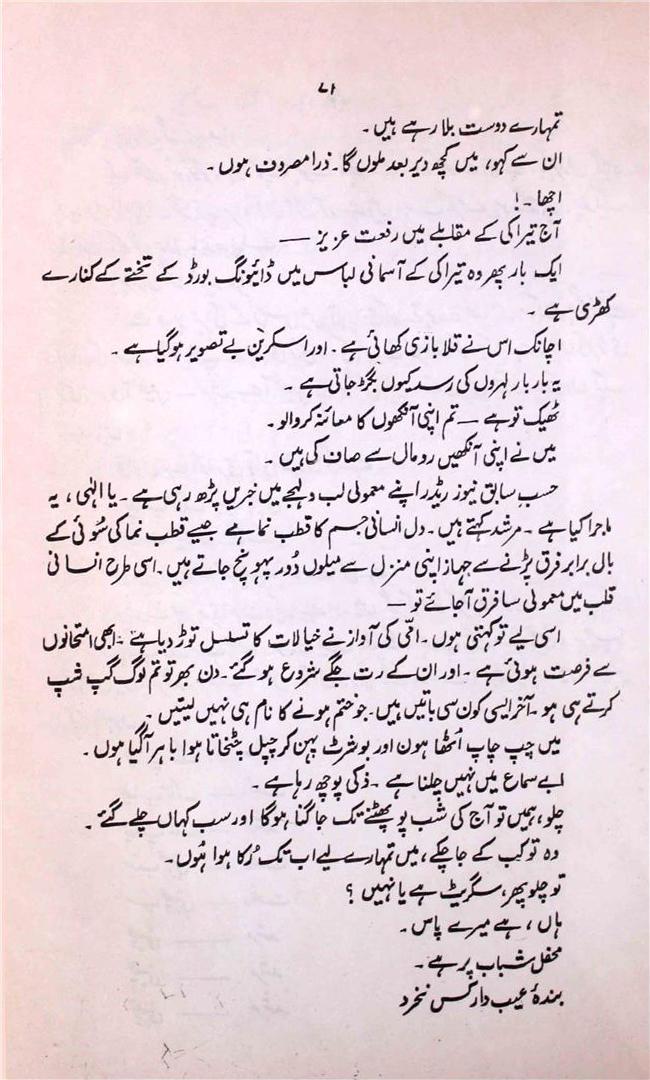 ۷۱
تمہارے دوست بلا رہے ہیں۔
ان سے کہو، میں کچھ دیر بعد ملوں گا۔ ذرا مصروف ہوں۔
اچھا۔!
آج تیراکی کے مقابلے میں رفعت عزیز ——
ایک بار پھر وہ تیراکی کے آسمانی لباس میں ڈائیونگ بورڈ کے تختے کے کنارے
کھڑی ہے۔
اچانک اس نے قلابازی کھائی ہے۔ اور اسکرین بے تصویر ہوگیا ہے۔
یہ بار بار لہروں کی رسد کیوں بگڑ جاتی ہے۔
ٹھیک تو ہے — تم اپنی آنکھوں کا معائنہ کروالو۔
میں نے اپنی آنکھیں رومال سے صاف کی ہیں۔
حسبِ سابق نیوز ریڈر اپنے معمولی لب ولہجے میں خبریں پڑھ رہی ہے۔ یا الٰہی، یہ
ماجرا کیا ہے۔ مرشد کہتے ہیں۔ دل انسانی جسم کا قطب نما ہے جیسے قطب نما کی سُوئی کے
بال برابر فرق پڑنے سے جہاز اپنی منزل سے میلوں دُور پہونچ جاتے ہیں۔ اسی طرح انسانی
قلب میں معمولی سا فرق آجائے تو —
اسی لیے تو کہتی ہوں۔ امّی کی آواز نے خیالات کا تسلسل توڑ دیا ہے۔ ابھی امتحانوں
سے فرصت ہوئی ہے۔ اور ان کے رت جگے شروع ہوگئے۔ دن بھر تو تم لوگ گپ شپ
کرتے ہی ہو۔ آخر ایسی کون سی باتیں ہیں۔ جو ختم ہونے کا نام ہی نہیں لیتیں۔
میں چپ چاپ اُٹھا ہوں اور بوشرٹ پہن کر چپل پٹخاتا ہوا باہر آگیا ہوں۔
ابے سماع میں نہیں چلنا ہے۔ ذکی پوچھ رہا ہے۔
چلو، ہمیں تو آج کی شب پو پھٹنے تک جاگنا ہوگا اور سب کہاں چلے گئے۔
وہ تو کب کے جاچکے، میں تمہارے لیے اب تک رُکا ہوا ہُوں۔
تو چلو پھر، سگریٹ ہے یا نہیں؟
ہاں، ہے میرے پاس۔
محفل شباب پر ہے۔
بندۂ عیب دار کس نخرد